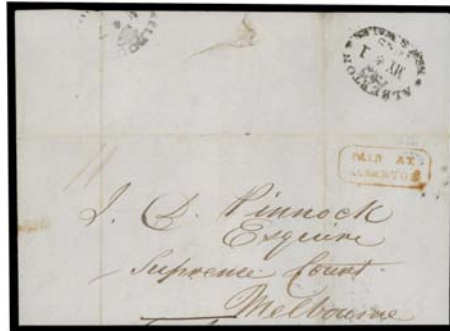 ALBERTON
NEW S. WALES
MY
1
PAID AT
ALBERTON
J. D. Pinnock
Esquire
Supreme Court
Melbourne